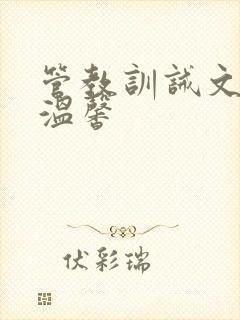 管教訓誡文
溫馨
伏彩瑞